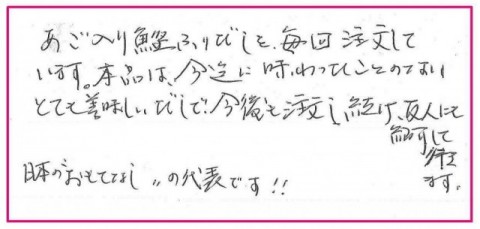 あご入り鰹ふりだしを、毎回注文して
います。本品は、今迄に味わったことのない
とても美味しいだしで、今後も注文し続け、友人にも
紹介して
行き
ます。
日本の“おもてなし〟の代表です!!